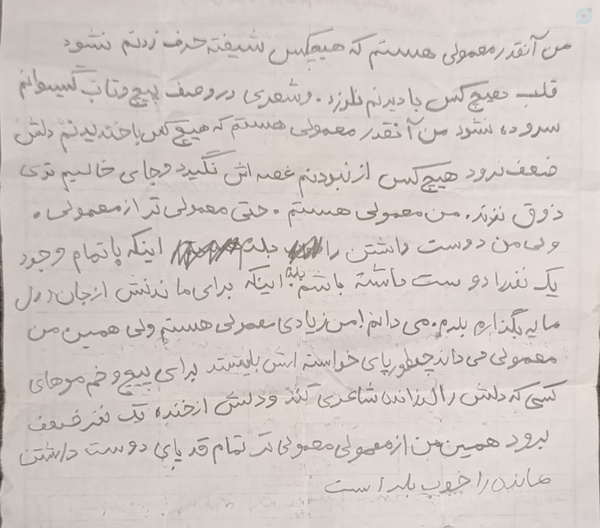 من آنقدر معمولی هستم که هیچکس شیفته حرف زدنم نشود
قلب هیچ کس با دیدنم نلرزد. و شعری در وصف پیچ و تاب گیسوانم
سروده نشود من آنقدر معمولی هستم که هیچ کس با خندیدنم دلش
ضعف نرود هیچ کس از نبودنم غصه اش نگیرد و جای خالیم توی
ذوق نزند. من معمولی هستم. حتی معمولی تر از معمولی.
ولی من دوست داشتن را بلدم اینکه با تمام وجود
یک نفر را دوست داشته باشم بلدم اینکه برای ماندنش از جان و دل
مایه بگذارم بلدم. می دانم! من زیادی معمولی هستم ولی همین من
معمولی می داند چطور پای خواسته اش بایستد برای پیچ و خم موهای
کسی که دلش را لرزانده شاعری کند و دلش از خنده یک نفر ضعف
برود همین من از معمولی معمولی تر تمام قد پای دوست داشتن
ماندن را خوب بلد است